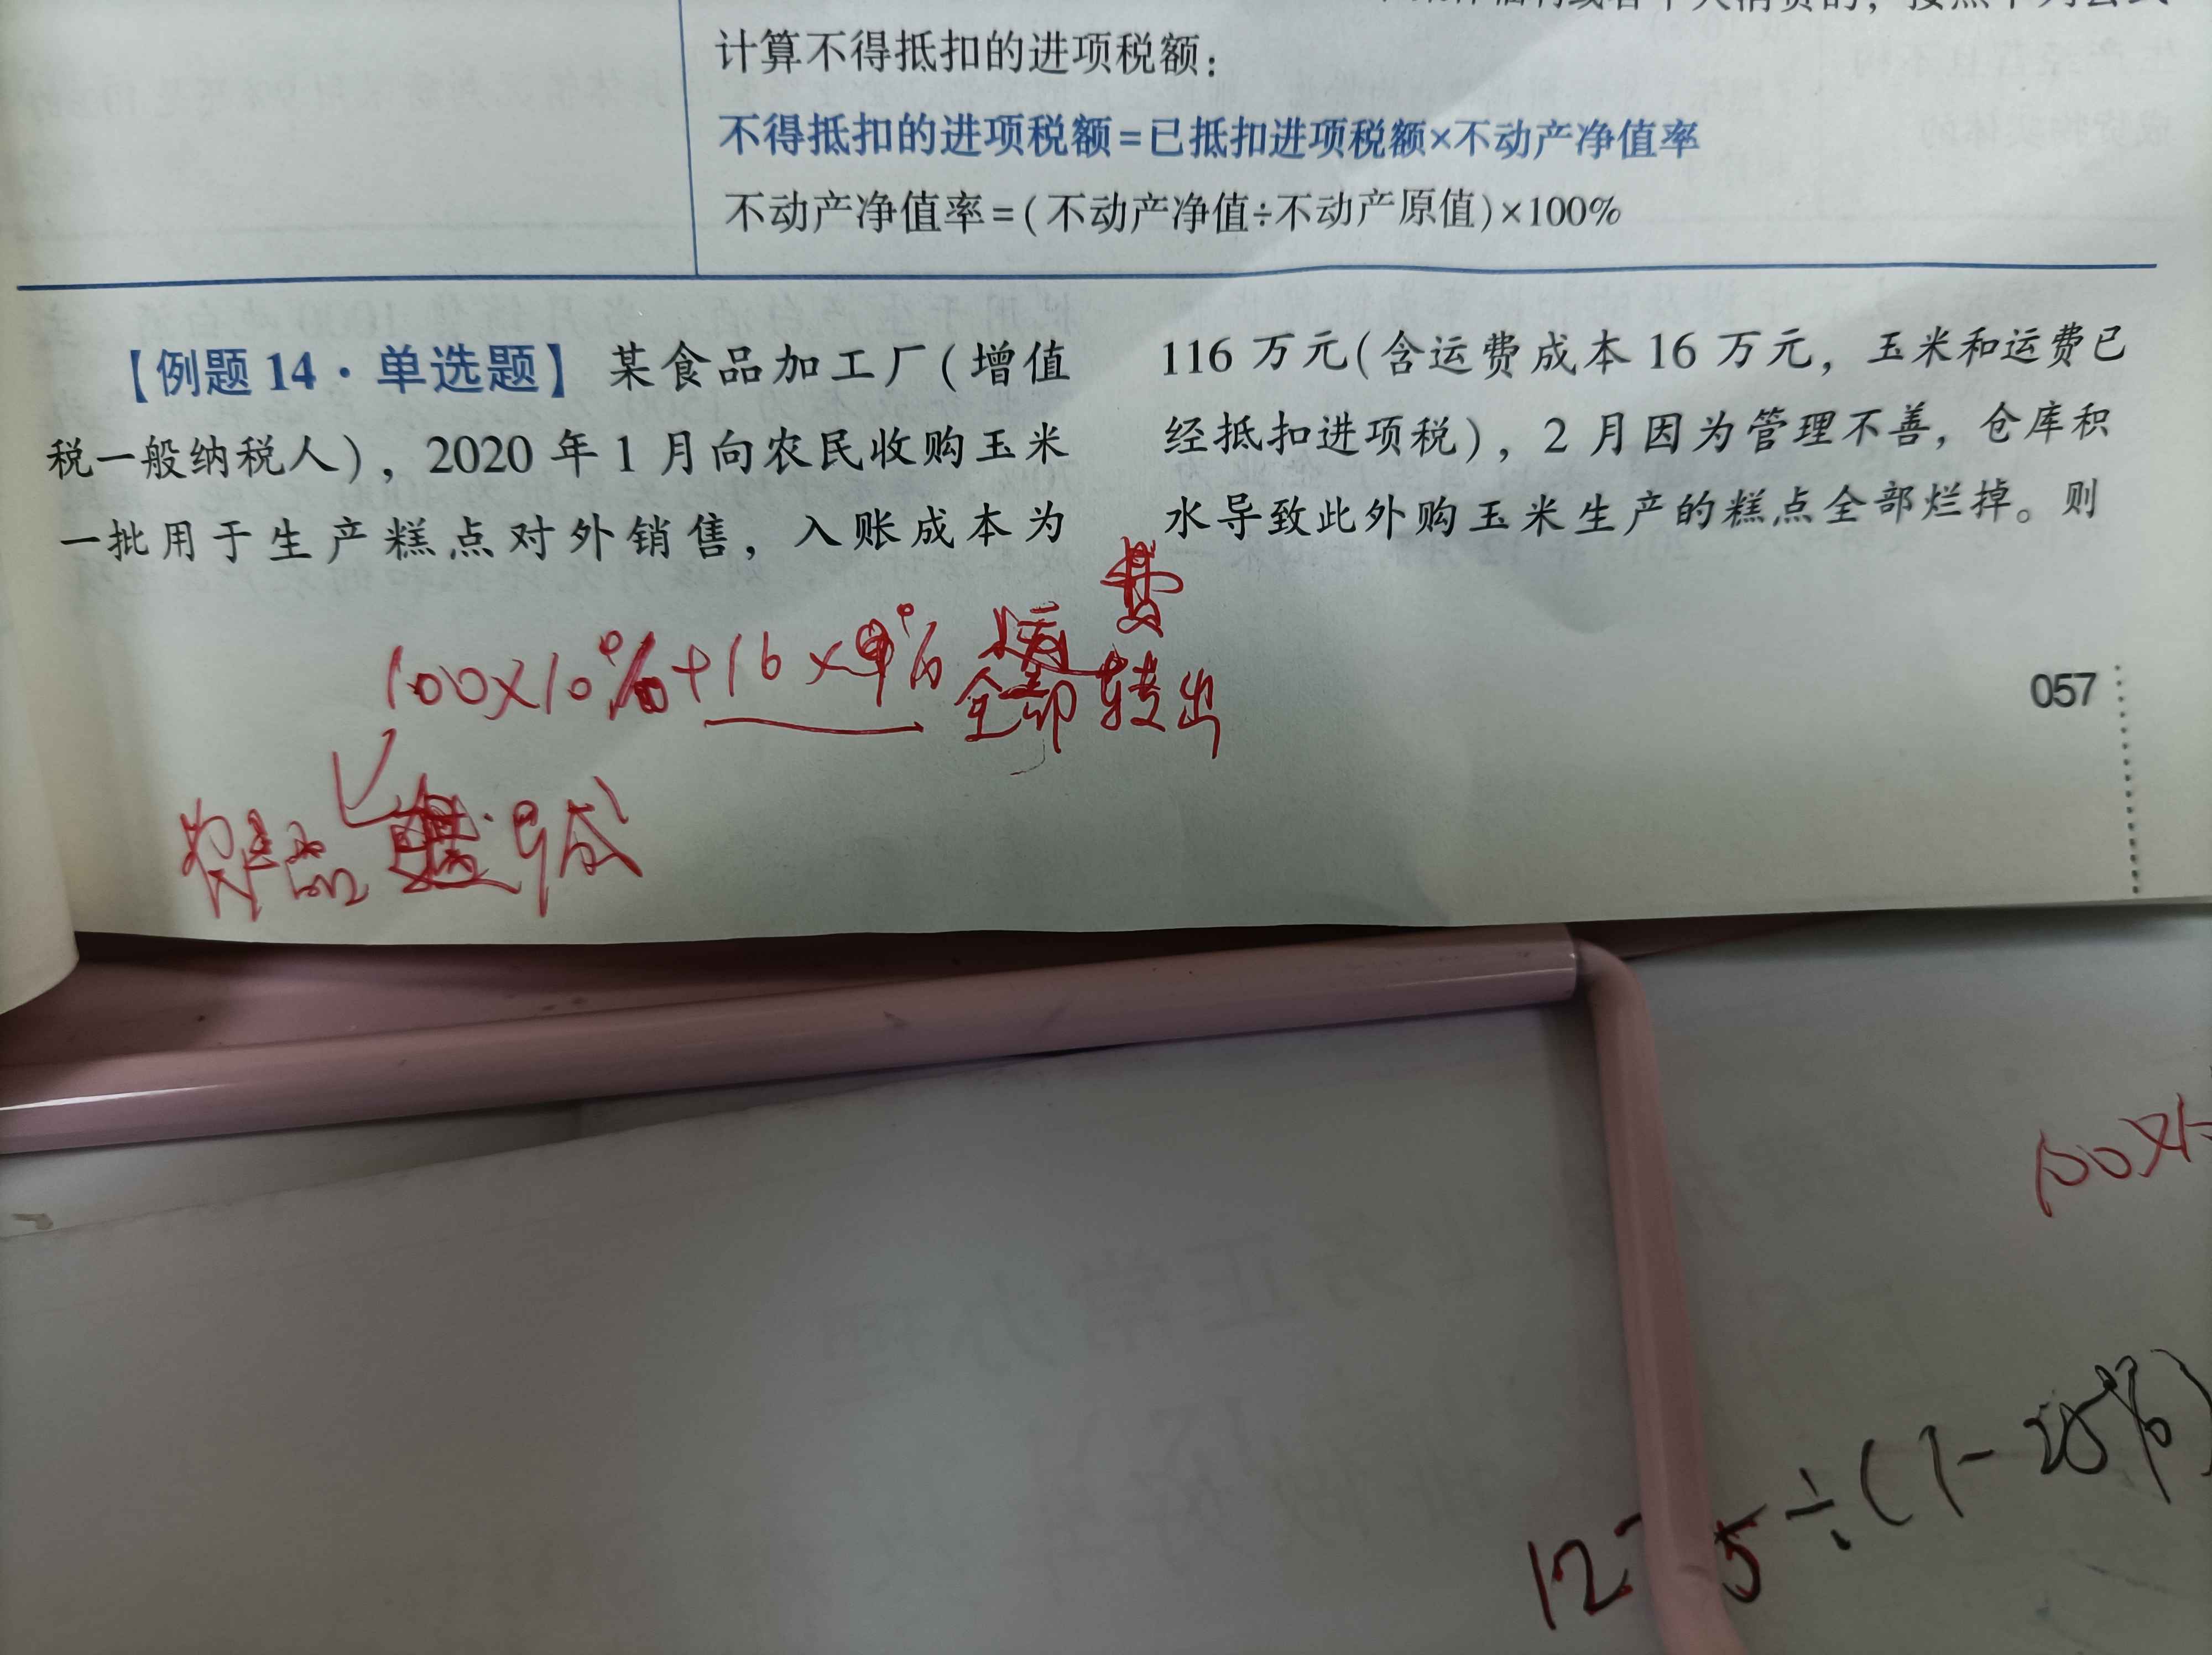 计算不得抵扣的进项税额：
不得抵扣的进项税额=已抵扣进项税额×不动产净值率
不动产净值率=(不动产净值÷不动产原值)×100%
【例题14·单选题】某食品加工厂(增值
税一般纳税人)，2020年1月向农民收购玉米
一批用于生产糕点对外销售，入账成本为
116万元(含运费成本16万元，玉米和运费已
经抵扣进项税)，2月因为管理不善，仓库积
水导致此外购玉米生产的糕点全部烂掉。则
费
100×10%+16×9%
全部转出
057
100×1
12-5÷(1-25%)